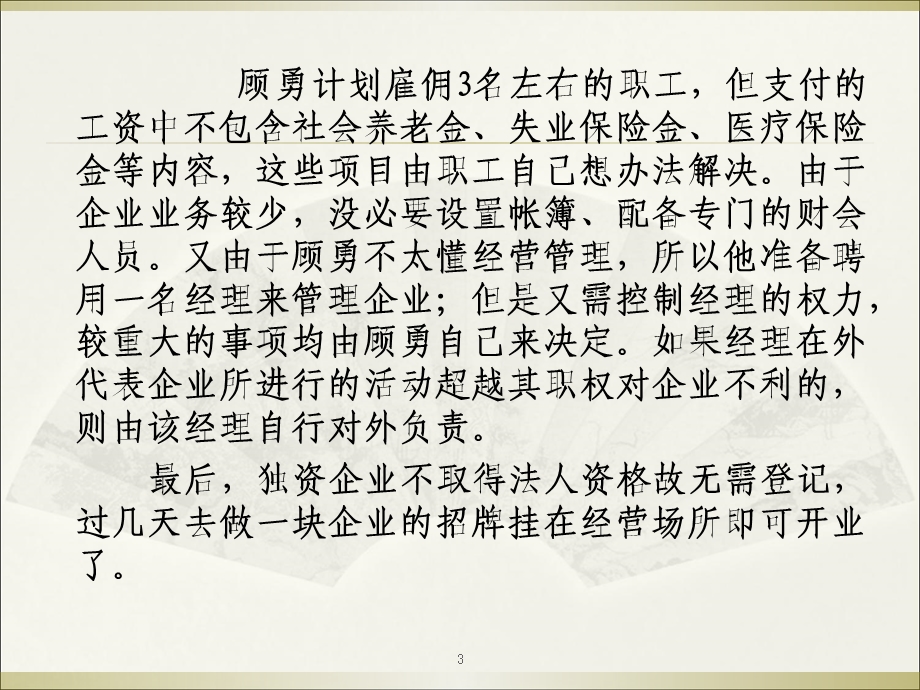 顾勇计划雇佣3名左右的职工，但支付的
工资中不包含社会养老金、失业保险金、医疗保险
金等内容，这些项目由职工自己想办法解决。由于
企业业务较少，没必要设置帐簿、配备专门的财会
人员。又由于顾勇不太懂经营管理，所以他准备聘
用一名经理来管理企业；但是又需控制经理的权力，
较重大的事项均由顾勇自己来决定。如果经理在外
代表企业所进行的活动超越其职权对企业不利的，
则由该经理自行对外负责。
最后，独资企业不取得法人资格故无需登记，
过几天去做一块企业的招牌挂在经营场所即可开业
了。
3